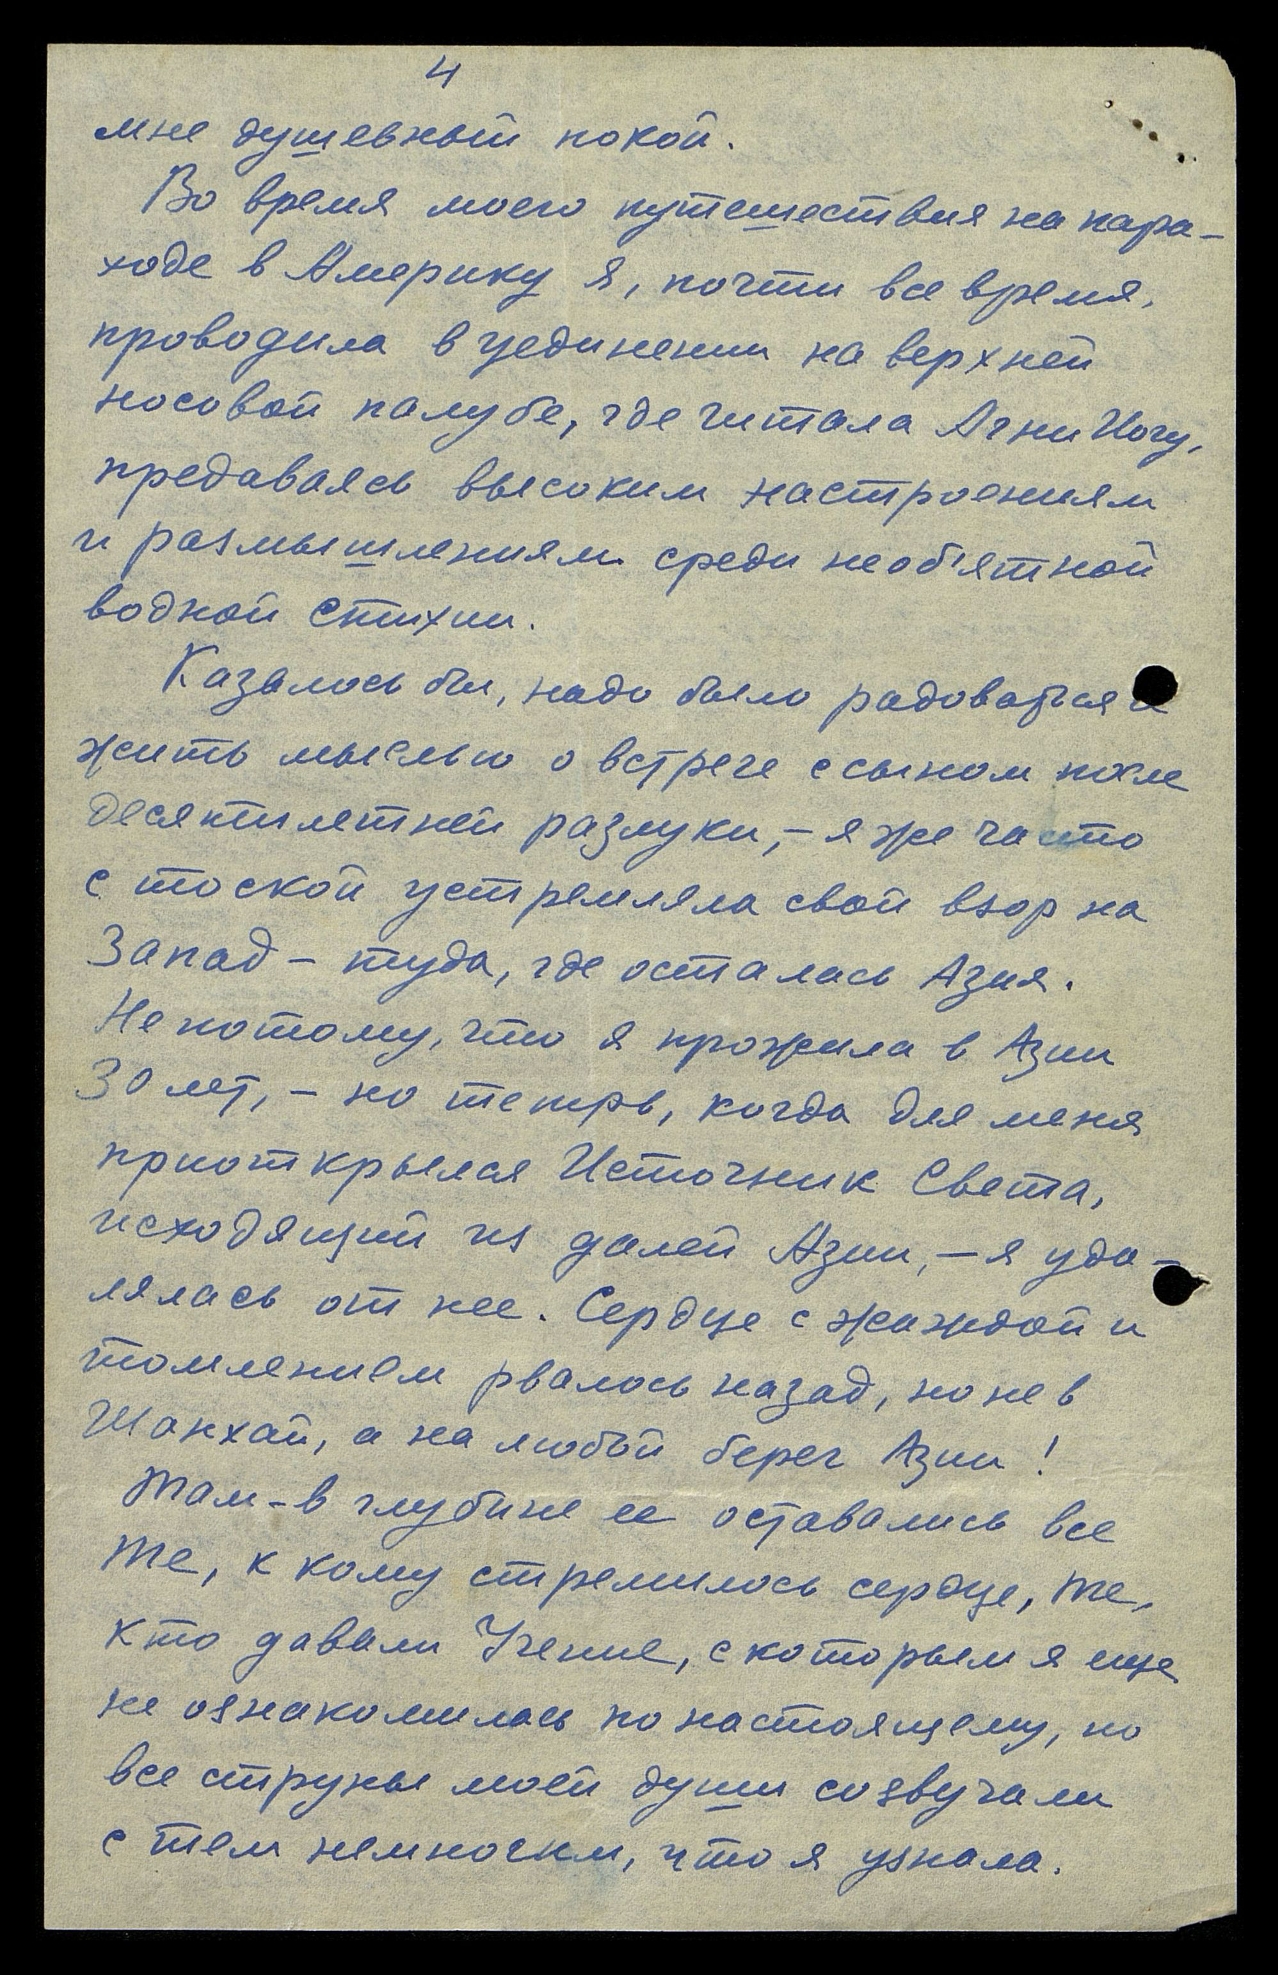 4
мне душевный покой.
Во время моего путешествия на паро-
ходе в Америку я, почти все время,
проводила в уединении на верхней
носовой палубе, где читала Агни Йогу,
предаваясь высоким настроениям
и размышлениям среди необ'ятной
водной стихии.
Казалось бы, надо было радоваться и
жить мыслью о встрече с сыном после
десятилетней разлуки, – я же часто
с тоской устремляла свой взор на
Запад – туда, где осталась Азия.
Не потому, что я прожила в Азии
30 лет, – но теперь, когда для меня
приоткрылся Источник Света,
исходящий из далей Азии, – я уда-
лялась от нее. Сердце с жаждой и
томлением рвалось назад, но не в
Шанхай, а на любой берег Азии!
Там – в глубине ее оставались все
те, к кому стремилось сердце, те,
кто давали Учение, с которым я еще
не ознакомилась по настоящему, но
все струны моей души созвучали
с тем немногим, что я узнала.